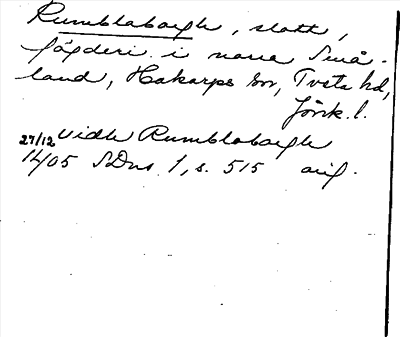 Rumblaborgh, slott,
fögderi i norra Små-
land, Hakarps sn, Tveta hd,
Jönk. l.
27/12 vidh Rumblaborgh
1405 SDns 1, s. 515 orig.